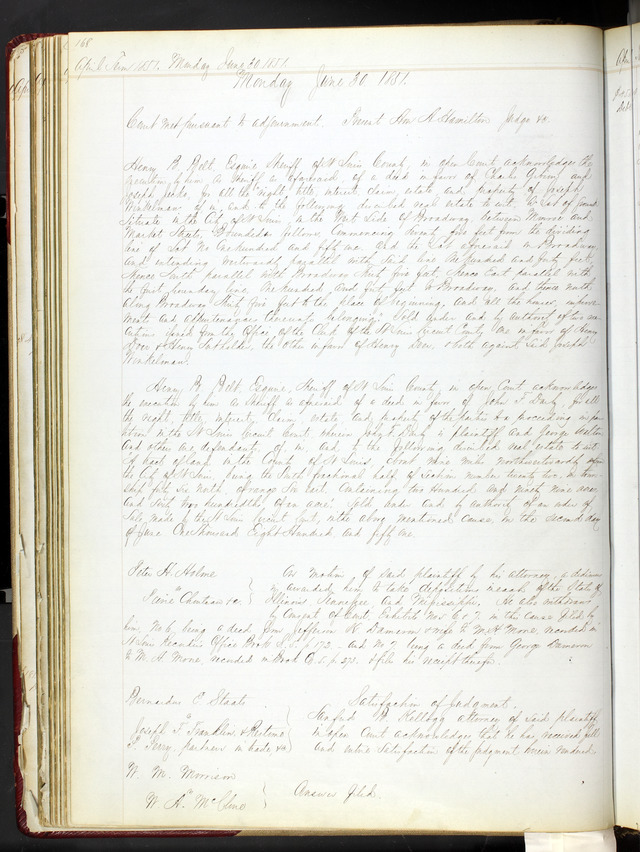 168
April Term 1851. Monday June 30. 1851.
Monday June 30. 1851.
Court met pursuant to adjournment. Present Hon A Hamilton Judge &c
Henry B Belt Esquire Sheriff of St Louis County, in open Court, acknowledges the
execution by him as Sheriff as aforesaid of a deed in favor of Charles and
Joseph for all the right, title, interest claim, estate and property of Joseph
Winkelman of in and to the following described real estate to wit: A lot of ground
situate in the City of St Louis on the West Side of Broadway between Monroe and
Market Streets, Bounded as follows Commencing twenty five feet from the dividing
line of Lot No One hundred and fifty one and the lot aforesaid on Broadway
and extending westwardly parallel with said line One hundred and forty feet,
thence South parallel with Broadway thirty five feet, thence East parallel with
the first boundary line One hundred and forty feet to Broadway, and thence north
along Broadway thirty five feet to the place of beginning, and all the houses, improve
ments and appurtenances thereunto belonging. Sold under and by authority of two ex-
ecutions issued from the Office of the Clerk of the St Louis Circuit Court, One in favor of Henry
and Henry the other in favor of Henry both against said Joseph
Winkelman.
Henry B Belt Esquire, Sheriff of St Louis County, in open Court acknowledges
the execution by him as Sheriff as aforesaid of a deed in favor of John F Darby, for all
the right, title, interest, claim, estate and property of the parties to a proceeding in par
tition in the St Louis Circuit Court, wherein John F Darby is plaintiff and George Walton
and others are defendants, of in and to the following described real estate to wit
A tract of land in the County of St Louis about nine miles northwestwardly from
the City of St Louis being the South fractional half of section number twenty two, in town-
ship forty six North of range six East containing two hundred and ninety nine acres
and sixty two hundredths of an acre. Sold under and by authority of an order of
Sale made by the St Louis Circuit Court, in the above mentioned cause, on the second day
of June One thousand Eight Hundred and fifty one.
Peter H. Holme
On motion of said plaintiff by his attorney, a dedimus
is awarded him to take depositions in each of the States of
Pierre Chouteau &c
Illinois Tennessee and Mississippi. He also withdraws
by consent of Court Exhibits Nos 6 & 7 in this cause filed by
him, No 6 being a deed from Jefferson K Dameron & wife to M H Moore, recorded in
St Louis Recorders Office Book S. 5. p 172. and No 7 being a deed from George Dameron
to M H Moore, recorded in Book Q. 5. p. 273. & files his receipt therefor.
Bernardus E Staats
Satisfaction of judgment.
Sanford B Kellogg attorney of said plaintiff
Joseph F Franklin &
in open Court acknowledges that he has received full
T. Terry, partners in trade, &c
and entire Satisfaction of the judgment herein rendered.
W. M. Morrison
Answer filed.
W. A. McClure